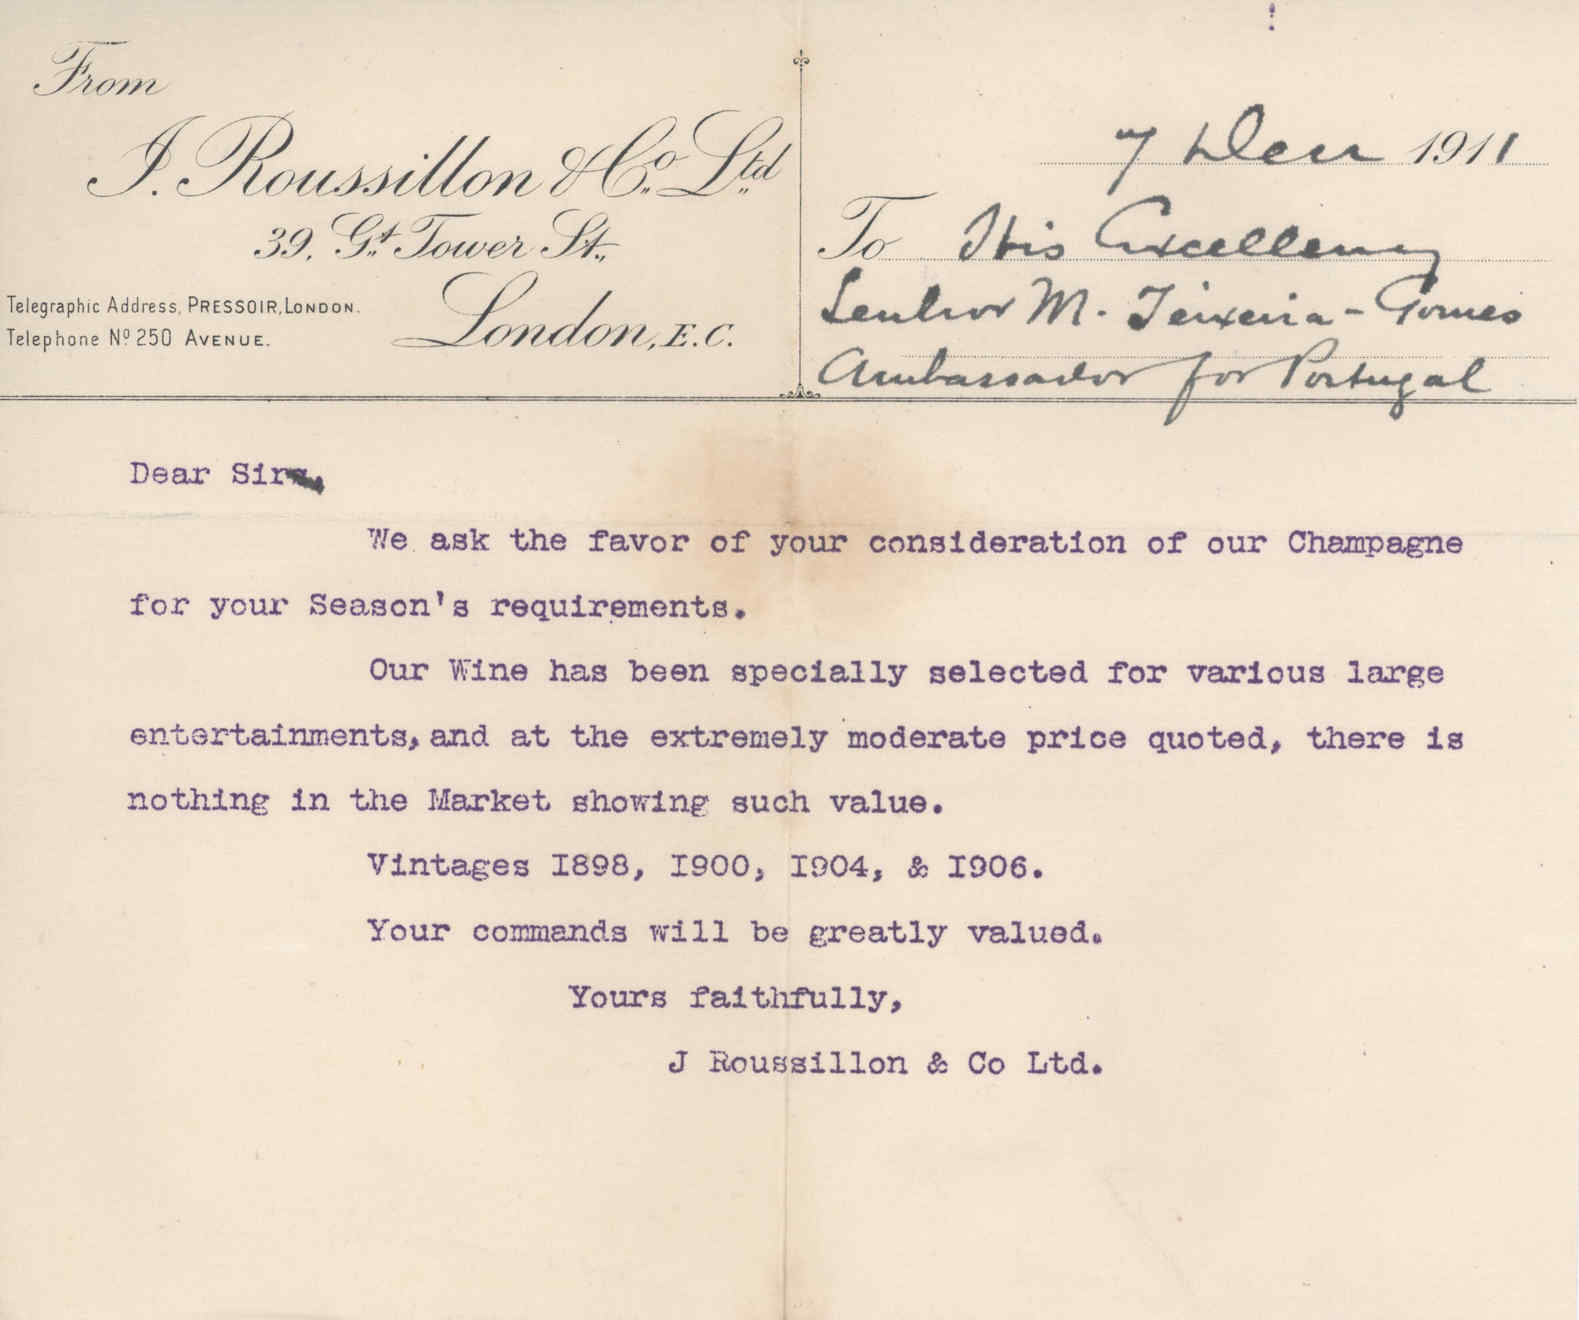 From
J. Roussillon & Co. Ltd
39, Gt. Tower St.,
Telegraphic Address, PRESSOIR, LONDON.
Telephone No 250 AVENUE.
London, E.C.
7 Decr 1911
To His Excellency
Senhor M. Teixeira-Gomes
Ambassador for Portugal
Dear Sir,
We ask the favor of your consideration of our Champagne
for your Season's requirements.
Our Wine has been specially selected for various large
entertainments, and at the extremely moderate price quoted, there is
nothing in the Market showing such value.
Vintages I898, I900, I904, & I906.
Your commands will be greatly valued.
Yours faithfully,
J Roussillon & Co Ltd.